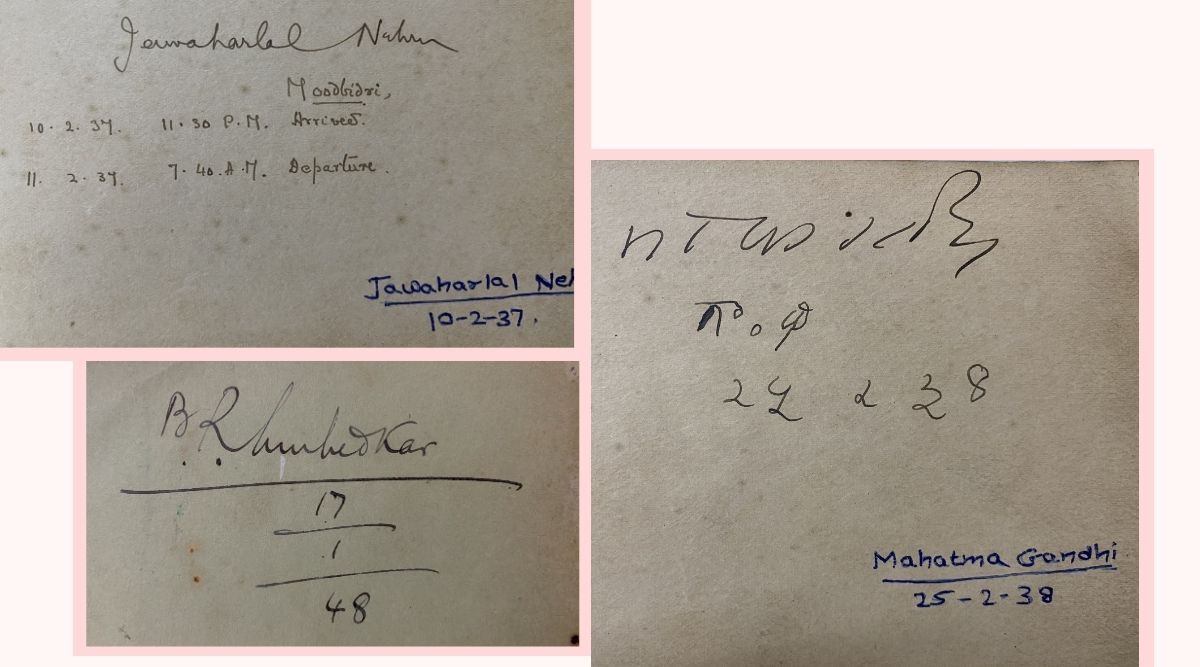 Jawaharlal Nehru
Moodbidri,
10. 2. 37. 11.30 P.M. Arrived.
11. 2. 37. 7.40.A.M. Departure.
Jawaharlal Neh
10-2-37.
B. R. Ambedkar
17
1
48
૨૫ ૨ ૩૪
Mahatma Gandhi
25-2-38